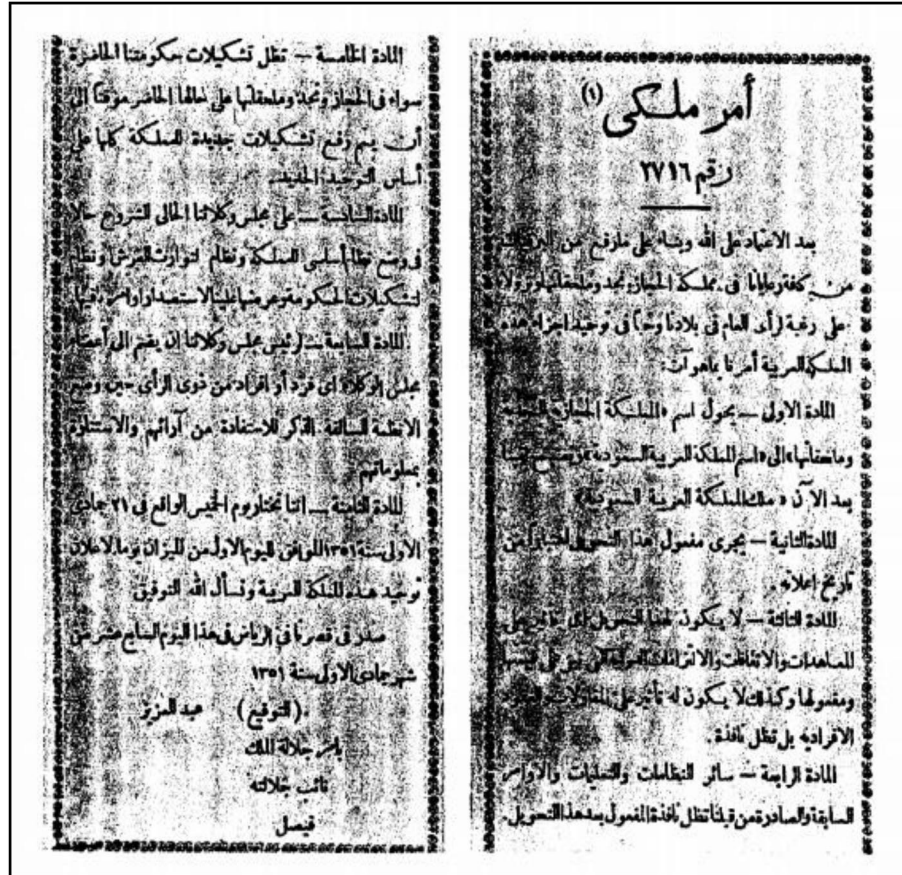 أمر ملكى (١)
رقم ٢٧١٦
بعد الاعتماد على الله وبناء على مارفع من البرقيات
من كافة رعايانا فى مملكة الحجاز ونجد وملحقاتها ونزولا
على رغبة الرأى العام فى بلادنا وحبا فى توحيد اجزاء هذه
المملكة العربية أمرنا بماهو آت :
المادة الاولى — يحول اسم «المملكة الحجازية النجدية
وملحقاتها» الى «اسم المملكة العربية السعودية» ويصبح لقبنا
بعد الآن «ملك المملكة العربية السعودية»
المادة الثانية — يجرى مفعول هذا التحويل اعتبارا من
تاريخ اعلانه .
المادة الثالثة — لا يكون لهذا التحويل اى تأثير على
المعاهدات والاتفاقات والالتزامات الدولية التى تبقى على قيمتها
ومفعولها وكذلك لا يكون له تأثير على المقاولات والعقود
الافرادية بل تظل نافذة .
المادة الرابعة — سائر النظامات والتعليمات والاوامر
السابقة والصادرة من قبلنا تظل نافذة المفعول بعد هذا التحويل .
المادة الخامسة — تظل تشكيلات حكومتنا الحاضرة
سواء فى الحجاز ونجد وملحقاتها على حالها الحاضر موقتا الى
أن يتم وضع تشكيلات جديدة للمملكة كلها على
أساس التوحيد الجديد .
المادة السادسة — على مجلس وكلائنا الحالى الشروع حالا
فى وضع نظام أساسى للمملكة ونظام لتوارث العرش ونظام
لتشكيلات الحكومة وعرضها علينا لاستصدار اوامرنا فيها .
المادة السابعة — لرئيس مجلس وكلائنا ان يضم الى أعضاء
مجلس الوكلاء اى فرد أو افراد من ذوى الرأى حين وضع
الانظمة السالفة الذكر للاستفادة من آرائهم والاستنارة
بمعلوماتهم
المادة الثامنة — اننا نختار يوم الخميس الواقع فى ٢١ جمادى
الاولى سنة ١٣٥١ الموافق لليوم الاول من الميزان يوما لاعلان
توحيد هذه المملكة العربية ونسأل الله التوفيق
صدر فى قصرنا فى الرياض فى هذا اليوم السابع عشر من
شهر جمادى الاولى سنة ١٣٥١
(التوقيع) عبد العزيز
بامر جلالة الملك
نائب جلالته
فيصل